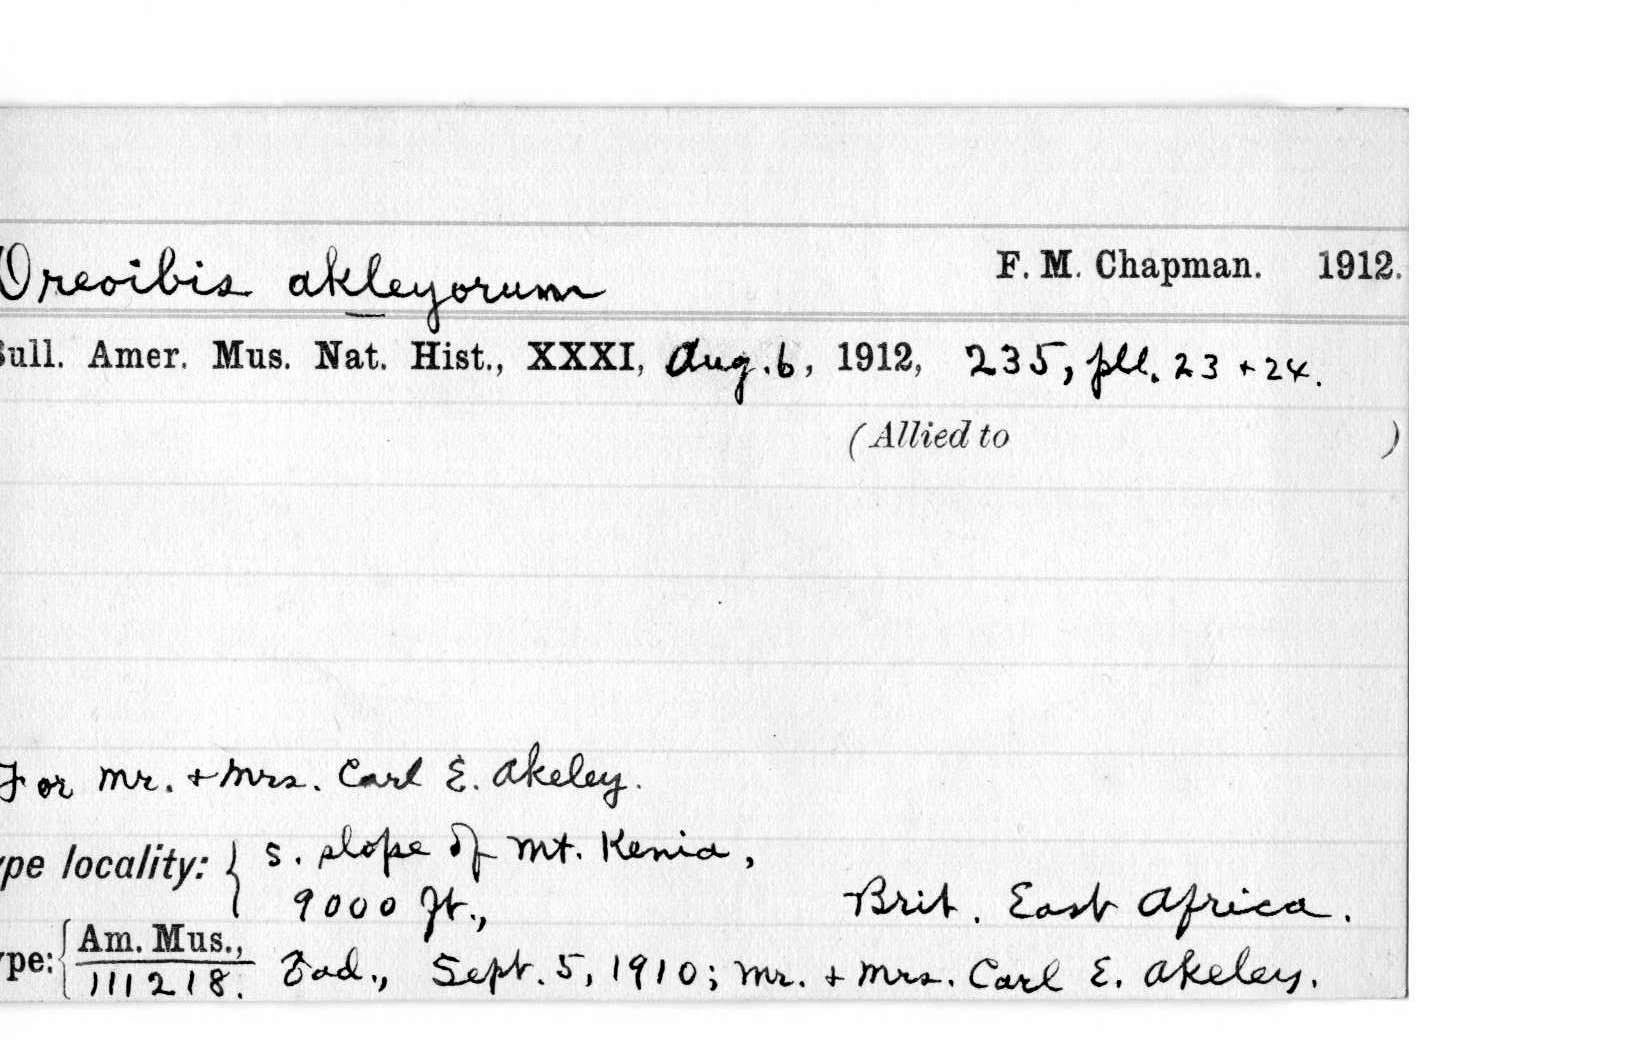 Oreoibis akleyorum F. M. Chapman. 1912.
Bull. Amer. Mus. Nat. Hist., XXXI, Aug. 6, 1912, 235, pll. 23 + 24.
(Allied to )
For Mr. + Mrs. Carl E. Akeley.
ype locality: { S. slope of Mt. Kenia,
9000 ft., Brit. East Africa.
ype: { Am. Mus.,
111218. ♂ad., Sept. 5, 1910; Mr. + Mrs. Carl E. Akeley.